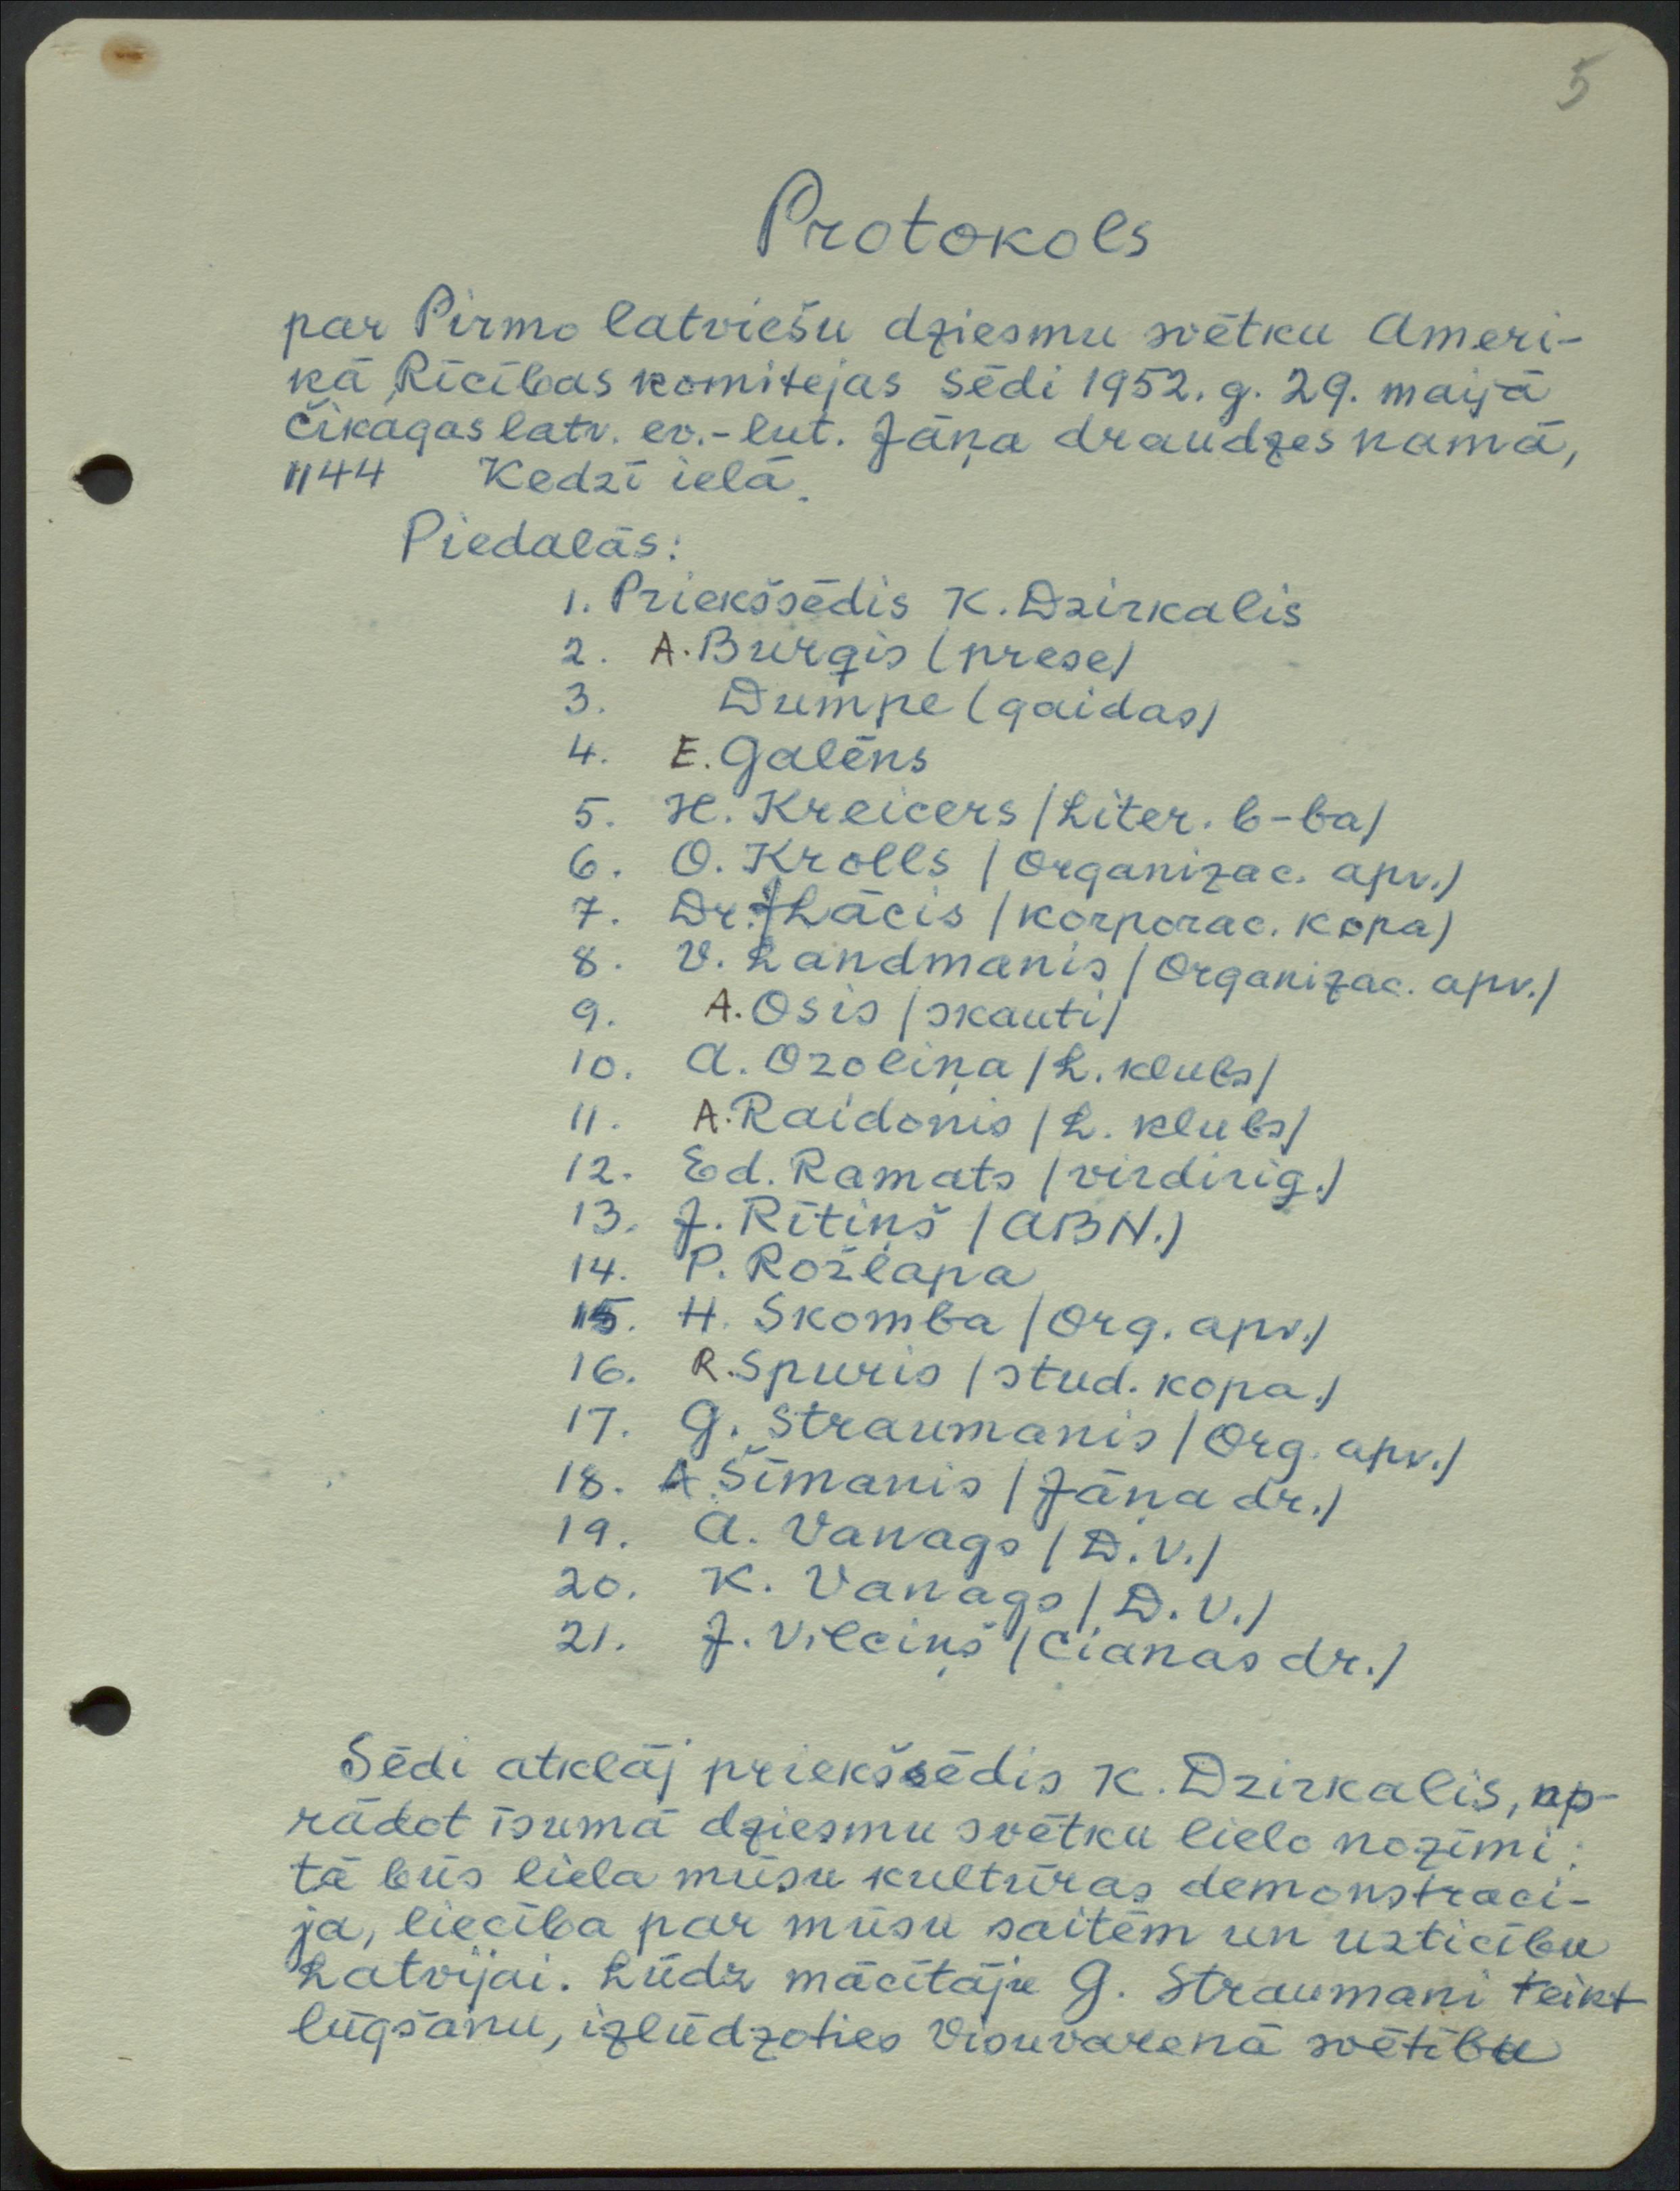 5
Protokols
par Pirmo latviešu dziesmu svētku Ameri-
kā Rīcības komitejas sēdi 1952. g. 29. maijā
Čikagas latv. ev.-lut. Jāņa draudzes namā,
1144 Kedzī ielā.
Piedalās:
1. Priekšsēdis K. Dzirkalis
2. A. Burģis (prese)
3. Dumpe (gaidas)
4. E. Galēns
5. H. Kreicers /Liter. b-ba/
6. O. Krolls /Organizac. apv./
7. Dr. J. Lācis /korporac. kopa)
8. V. Landmanis /Organizac. apv./
9. A. Osis /skauti/
10. A. Ozoliņa /L. klubs/
11. A. Raidonis /L. klubs/
12. Ed. Ramats /virdirig./
13. J. Rītiņš /ABN./
14. P. Rožlapa
15. H. Skomba /Org. apv./
16. R. Spuris /stud. kopa./
17. G. Straumanis /Org. apv./
18. A. Šīmanis /Jāņa dr./
19. A. Vanags /D.V./
20. K. Vanags /D.V./
21. J. Vilciņš /Ciānas dr./
Sēdi atklāj priekšsēdis K. Dzirkalis, ap-
rādot īsumā dziesmu svētku lielo nozīmi:
tā būs liela mūsu kultūras demonstrāci-
ja, liecība par mūsu saitēm un uzticību
Latvijai. Lūdz mācītāju G. Straumani teikt
lūgšanu, izlūdzoties Visuvarenā svētību